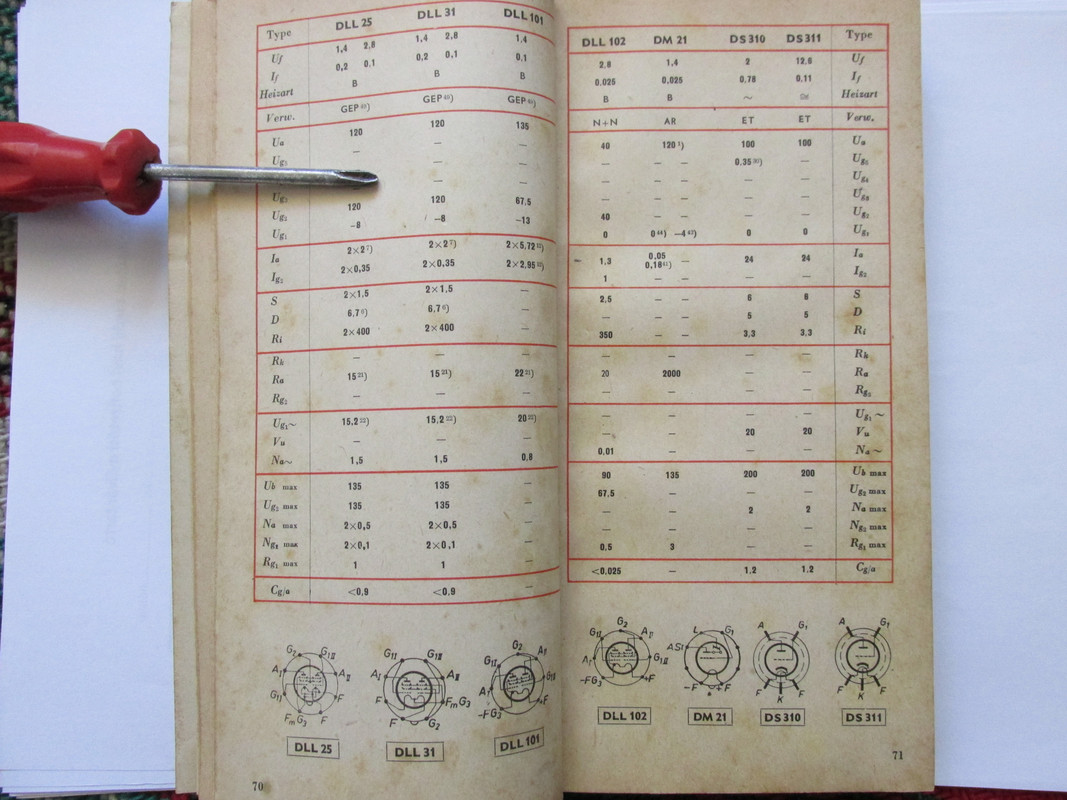 Type DLL 25 DLL 31 DLL 101
Uf 1,4 2,8 1,4 2,8 1,4
If 0,2 0.1 0,2 0.1 0.1
Heizart B B B
Verw. GEP GEP GEP
Ua 120 120 135
Ug5 — — —
— —
Ug3 — — —
Ug2 120 120 67,5
Ug1 −8 −8 −13
Ia 2×2 7) 2×2 7) 2×5,72
Ig2 2×0,35 2×0,35 2×2,95
S 2×1,5 2×1,5 —
D 6,7 6) 6,7 6) —
Ri 2×400 2×400 —
Rk — — —
Ra 15 21) 15 21) 22 21)
Rg2 — — —
Ug1~ 15,2 22) 15,2 22) 20 22)
Vu — — —
Na~ 1,5 1,5 0,8
Ub max 135 135 —
Ug2 max 135 135 —
Na max 2×0,5 2×0,5 —
Ng2 max 2×0,1 2×0,1 —
Rg1 max 1 1 —
Cg/a <0,9 <0,9 —
G2 G1II AI AII G1I F FmG3 F
G1I G1II AI AII F FmG3 F G2
G2 AII G1I G1II AI +F −FG3
DLL 25 DLL 31 DLL 101
70
DLL 102 DM 21 DS 310 DS 311 Type
2,8 1,4 2 12.6 Uf
0.025 0,025 0.78 0.11 If
B B ~ Heizart
N+N AR ET ET Verw.
40 120 1) 100 100 Ua
— — — 0.35 — Ug5
— — — — — Ug4
— — — — — Ug3
40 — — — — Ug2
0 0 −4 0 0 Ug1
1,3 0,05 — 24 24 Ia
0,18
1 — — — — Ig2
2,5 — — 6 6 S
— — — 5 5 D
350 — — 3,3 3.3 Ri
— — — — Rk
20 2000 — — Ra
— — — — Rg2
— — — — Ug1~
— — 20 20 Vu
0,01 — — — Na~
90 135 200 200 Ub max
67.5 — — — Ug2 max
— — 2 2 Na max
— — — — Ng2 max
0,5 3 — — Rg1 max
<0.025 — 1,2 1,2 Cg/a
G2 G1I AII AI G1II −FG3 +F
L G1 ASt −F +F
A G1 F K F
A G1 F K F
DLL 102 DM 21 DS 310 DS 311
71